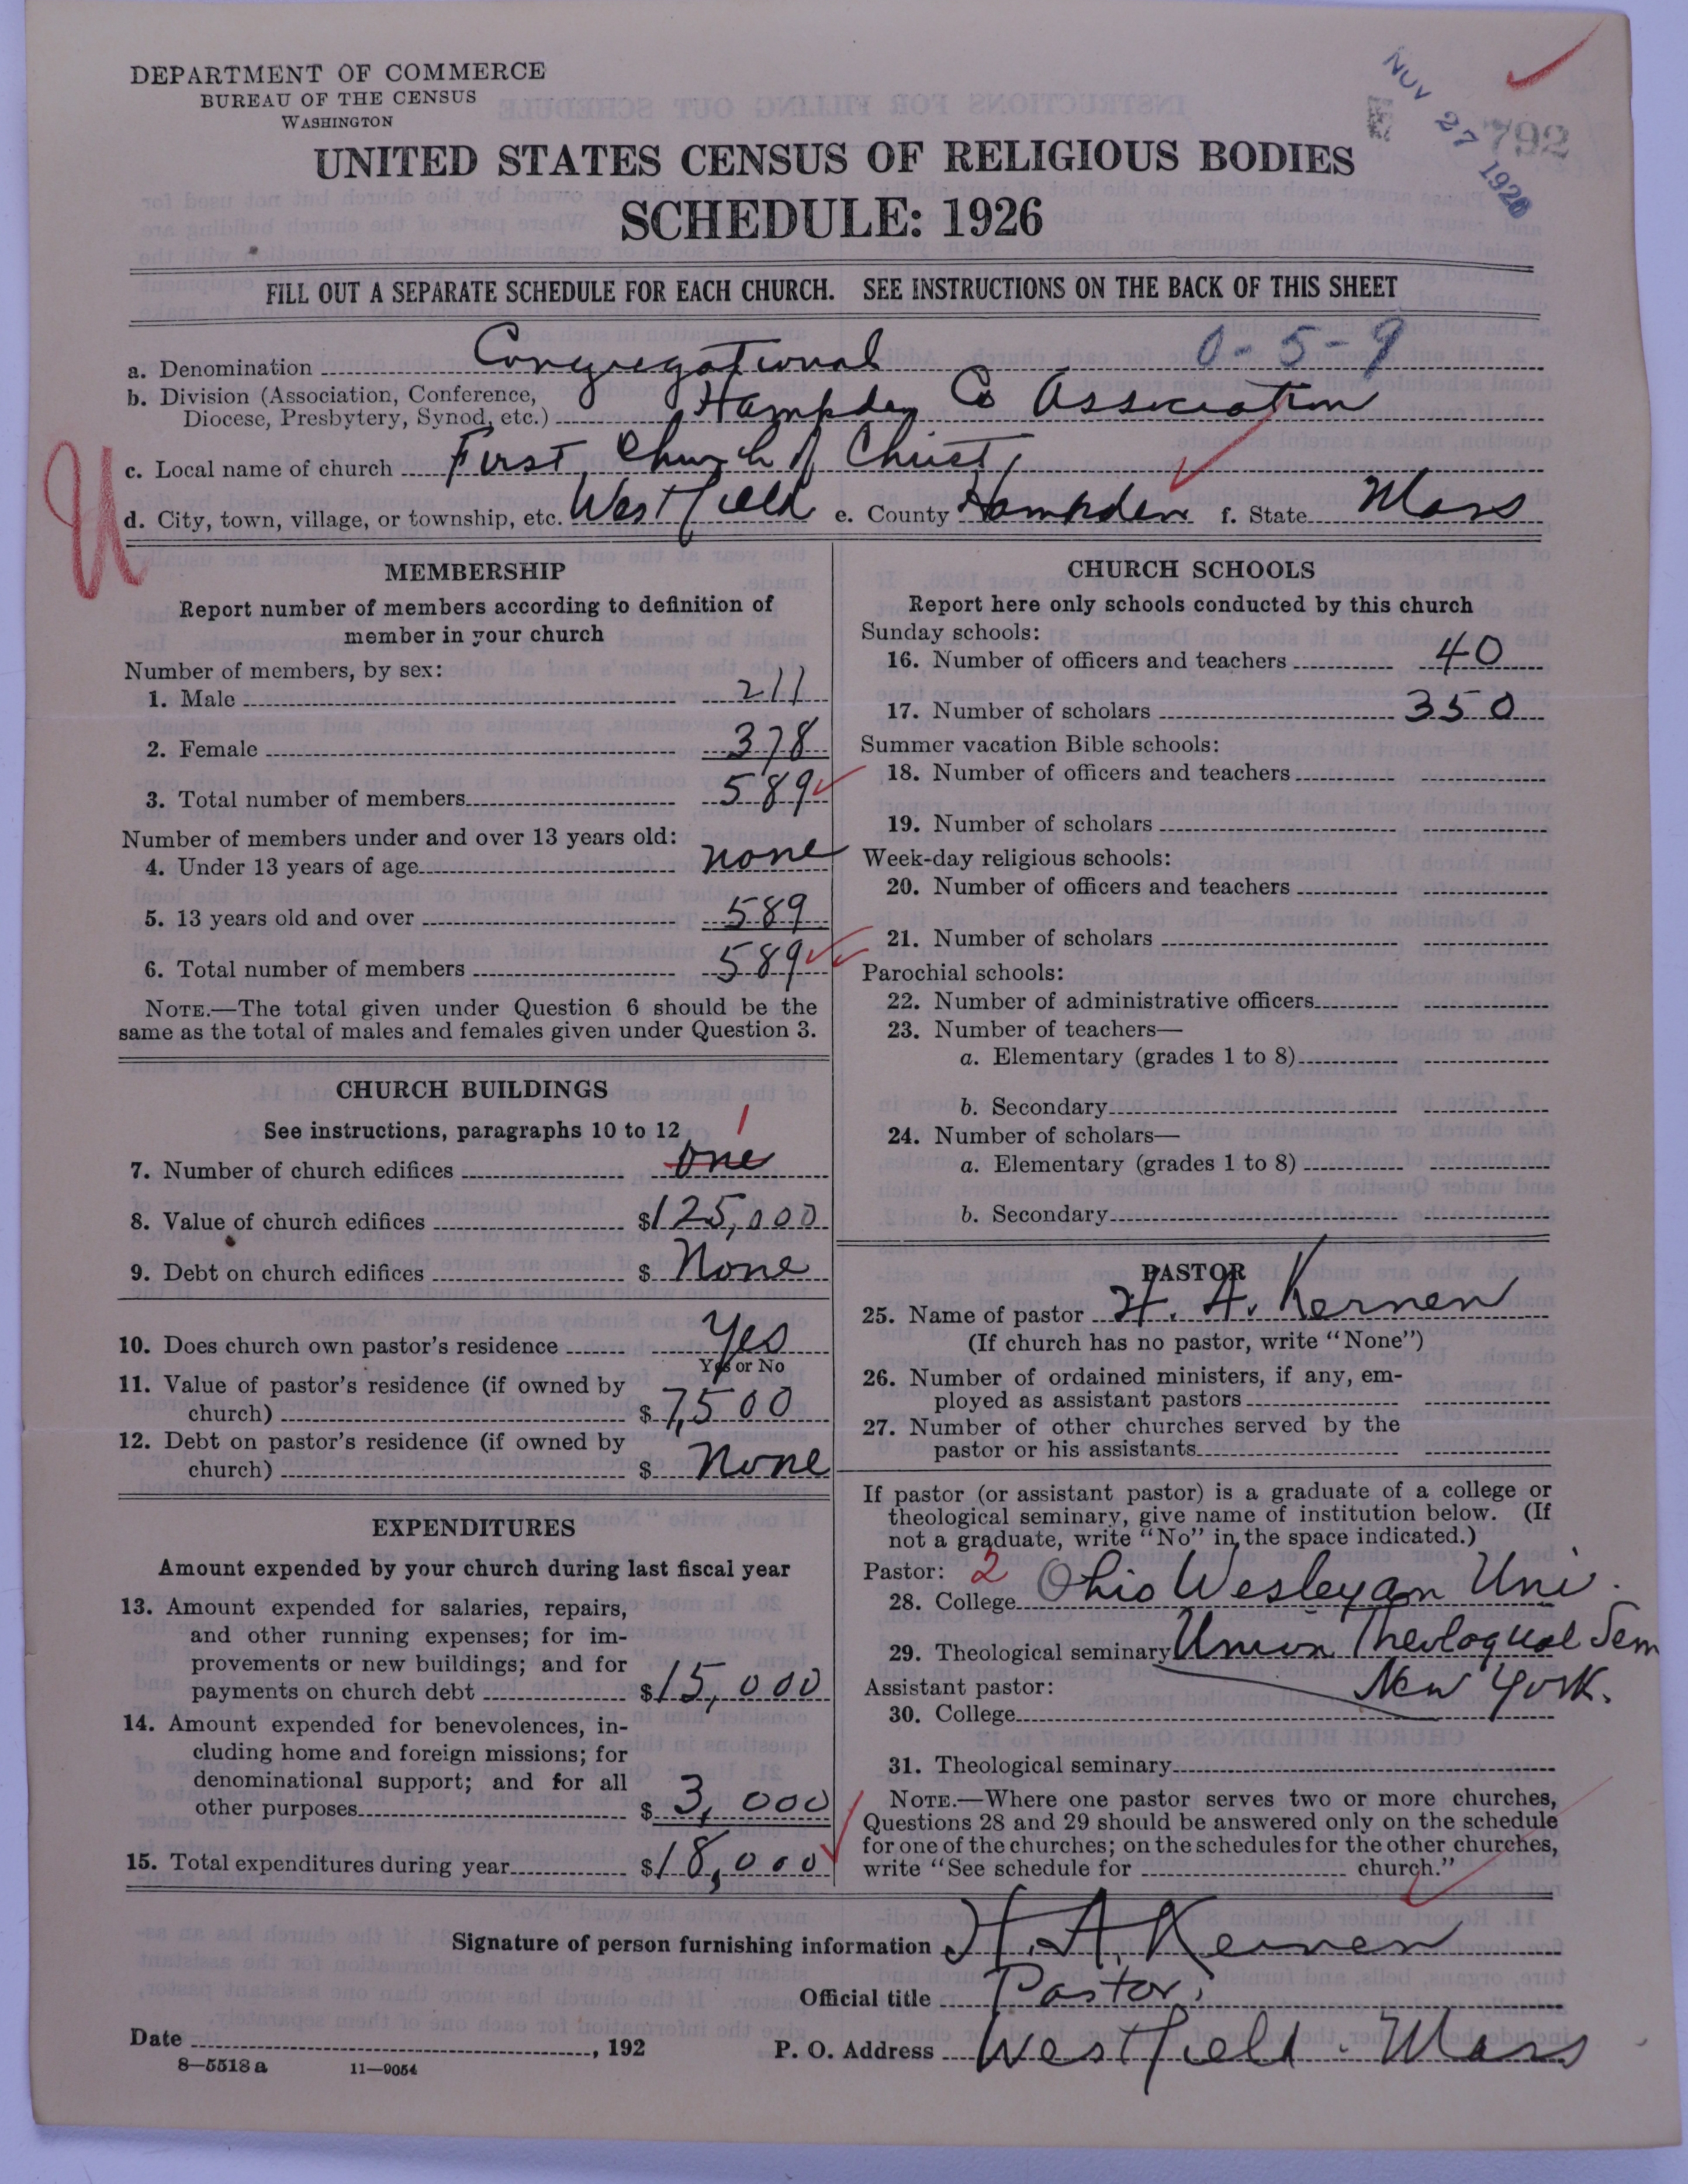 DEPARTMENT OF COMMERCE
BUREAU OF THE CENSUS
WASHINGTON
NOV 27 1926
792
UNITED STATES CENSUS OF RELIGIOUS BODIES
SCHEDULE: 1926
FILL OUT A SEPARATE SCHEDULE FOR EACH CHURCH. SEE INSTRUCTIONS ON THE BACK OF THIS SHEET
a. Denomination Congregational 0-5-9
b. Division (Association, Conference,
Diocese, Presbytery, Synod, etc.) Hampden Co Association
c. Local name of church First Church of Christ,
U
d. City, town, village, or township, etc. Westfield e. County Hampden f. State Mass
MEMBERSHIP
Report number of members according to definition of
member in your church
Number of members, by sex:
1. Male 211
2. Female 378
3. Total number of members 589
Number of members under and over 13 years old:
4. Under 13 years of age none
5. 13 years old and over 589
6. Total number of members 589
NOTE.—The total given under Question 6 should be the
same as the total of males and females given under Question 3.
CHURCH BUILDINGS
See instructions, paragraphs 10 to 12
1
7. Number of church edifices one
8. Value of church edifices $125,000
9. Debt on church edifices $ None
10. Does church own pastor's residence Yes
Yes or No
11. Value of pastor's residence (if owned by
church) $7,500
12. Debt on pastor's residence (if owned by
church) $ None
EXPENDITURES
Amount expended by your church during last fiscal year
13. Amount expended for salaries, repairs,
and other running expenses; for im-
provements or new buildings; and for
payments on church debt $15,000
14. Amount expended for benevolences, in-
cluding home and foreign missions; for
denominational support; and for all
other purposes $ 3,000
15. Total expenditures during year $18,000
CHURCH SCHOOLS
Report here only schools conducted by this church
Sunday schools:
16. Number of officers and teachers 40
17. Number of scholars 350
Summer vacation Bible schools:
18. Number of officers and teachers
19. Number of scholars
Week-day religious schools:
20. Number of officers and teachers
21. Number of scholars
Parochial schools:
22. Number of administrative officers
23. Number of teachers—
a. Elementary (grades 1 to 8)
b. Secondary
24. Number of scholars—
a. Elementary (grades 1 to 8)
b. Secondary
PASTOR
25. Name of pastor H. A. Kernen
(If church has no pastor, write "None")
26. Number of ordained ministers, if any, em-
ployed as assistant pastors
27. Number of other churches served by the
pastor or his assistants
If pastor (or assistant pastor) is a graduate of a college or
theological seminary, give name of institution below. (If
not a graduate, write "No" in the space indicated.)
Pastor: 2
28. College Ohio Wesleyan Uni.
29. Theological seminary Union Theological Sem
Assistant pastor: New York.
30. College
31. Theological seminary
NOTE.—Where one pastor serves two or more churches,
Questions 28 and 29 should be answered only on the schedule
for one of the churches; on the schedules for the other churches,
write "See schedule for church."
Signature of person furnishing information H. A. Kernen
Official title Pastor.
Date , 192 P. O. Address Westfield. Mass
8—5518a 11—9054